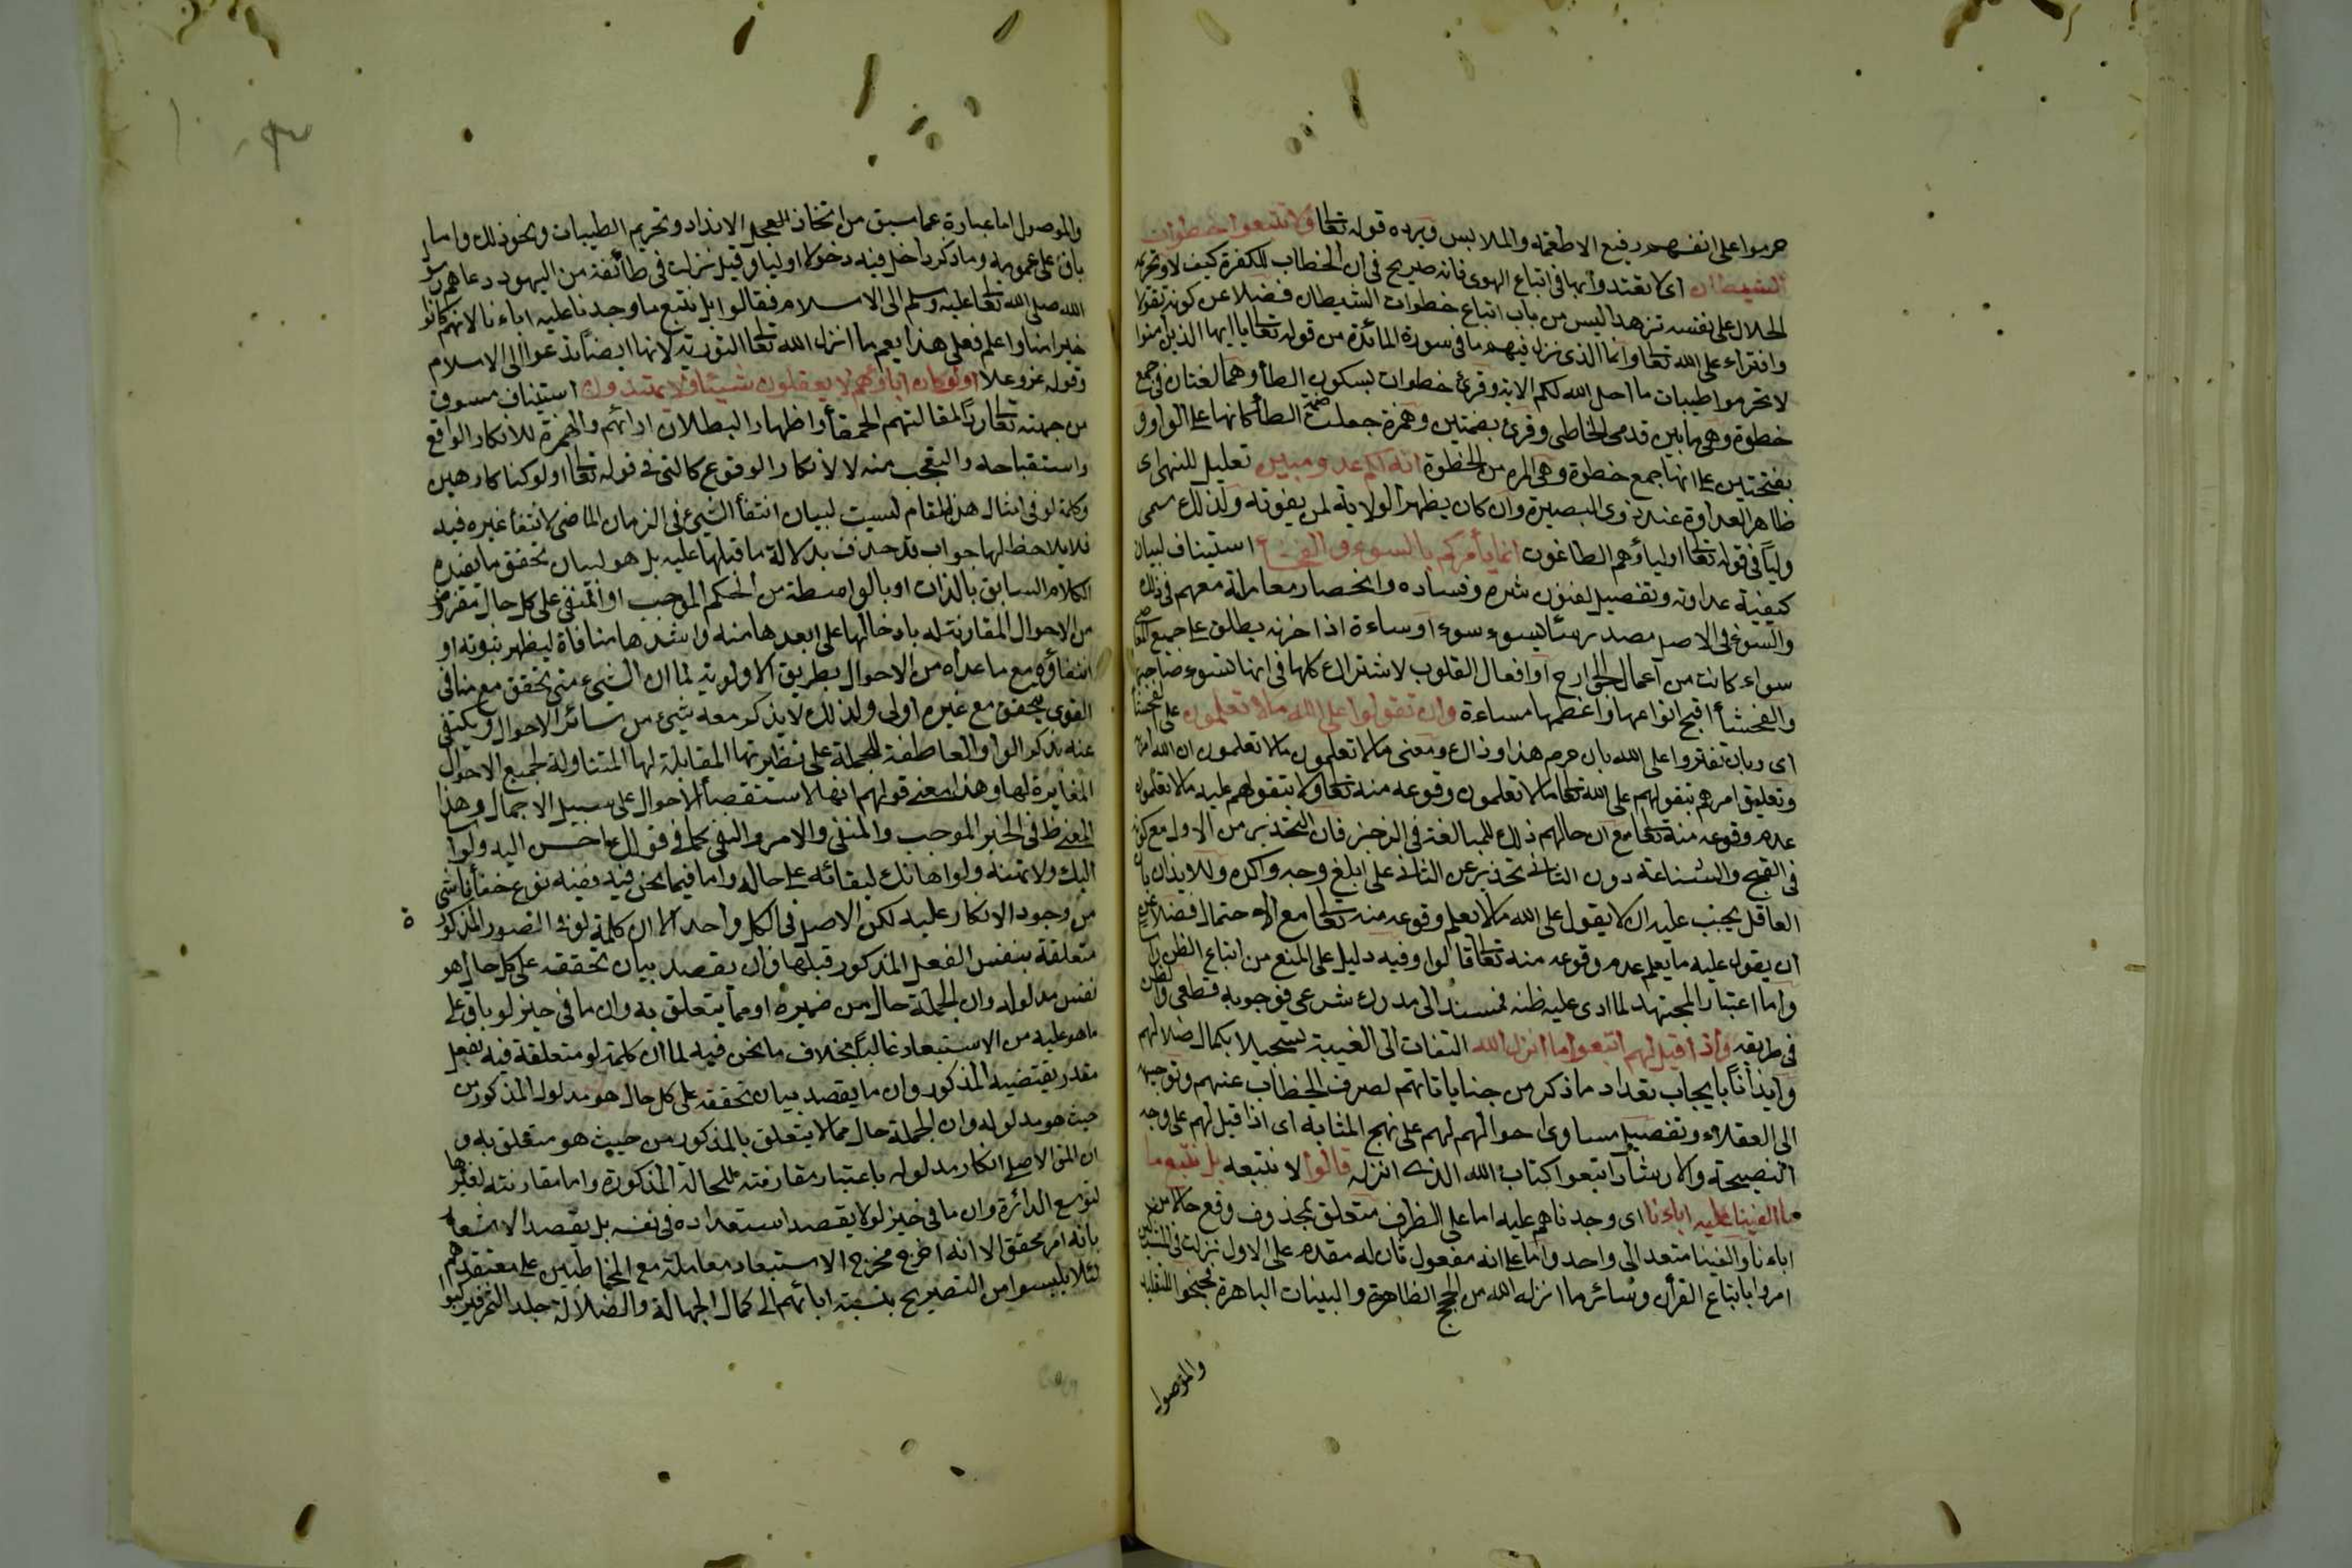 حرموا على انفسهم رفيع الاطعمة والملابس ويرده قوله تعا ولا تتبعوا خطوات
الشيطان اى لا تقتدوا بها فى اتباع الهوى فانه صريح فى ان الخطاب للكفرة كيف لا وتحريم
الحلال على نفسه تزهدا ليس من باب اتباع خطوات الشيطان فضلا عن كونه تقولا
وافتراء على الله تعا وانما الذى نزل فيهم ما فى سورة المائدة من قوله تعا يا ايها الذين امنوا
لا تحرموا طيبات ما احل الله لكم الاية وقرئ خطوات بسكون الطأ وهما لغتان فى جمع
خطوة وهى ما بين قدمى الخاطى وقرئ بضمتين وهمزة جعلت ضمة الطأ كانها على الواو و
بفتحتين على انها جمع خطوة وهى المرة من الخطوة انه لكم عدو مبين تعليل للنهى اى
ظاهر العداوة عند ذوى البصيرة وان كان يظهر الولاية لمن يغوته ولذلك سمى
وليا فى قوله تعا اولياؤهم الطاغوت انما يأمركم بالسوء والفحشأ استيناف لبيان
كيفية عداوته وتفصيل لفنون شره وفساده وانحصار معاملته معهم فى ذلك
والسوء فى الاصل مصدر سأ يسوء سوء او مساءة اذا حزنه يطلق على جميع المعاصى
سواء كانت من اعمال الجوارح او افعال القلوب لاشتراك كلها فى انها تسوء صاحبها
والفحشأ اقبح انواعها واعظمها مساءة وان تقولوا على الله ما لا تعلمون على الفحشأ
اى وبان تفتروا على الله بان حرم هذا وذاك ومعنى ما لا تعلمون ما لا تعلمون ان الله امر
وتعليق امرهم بتقولهم على الله تعا ما لا تعلمون وقوعه منه تعا ولا بتقولهم عليه ما لا تعلمون
عدم وقوعه منه تعا مع ان حالهم ذلك للمبالغة فى الزجر فان التحذير من الاول مع كونه
فى القبح والشناعة دون الثانى تحذير عن الثانى على ابلغ وجه واكده وللايذان بان
العاقل يجب عليه ان لا يقول على الله ما لا يعلم وقوعه منه تعا مع الاحتمال فضلا عن
ان يقول عليه ما يعلم عدم وقوعه منه تعا قالوا وفيه دليل على المنع من اتباع الظن راسا
واما اعتبار المجتهد لما ادى عليه ظنه فمستند الى مدرك شرعى فوجوبه قطعى والظن
فى طريقه واذا قيل لهم اتبعوا ما انزل الله التفات الى الغيبة تسجيلا بكمال ضلالهم
وايذانا بايجاب تعداد ما ذكر من جناياتهم لصرف الخطاب عنهم وتوجيهه
الى العقلاء وتفصيل مساوى احوالهم لهم على نهج المثابه اى اذا قيل لهم على وجه
النصيحة والارشاد اتبعوا كتاب الله الذى انزله قالوا لا نتبعه بل نتبع ما
ما الفينا عليه اباءنا اى وجدناهم عليه اما على الظرف متعلق بمحذوف وقع حالا من
اباءنا والفينا متعد الى واحد واما على انه مفعول ثان له مقدم على الاول نزلت فى المشركين
امروا باتباع القرأن وسائر ما انزله الله من الحجج الظاهرة والبينات الباهرة فجنحوا للتقليد
والموصول
والموصول اما عبارة عما سبق من اتخاذ العجل الانداد وتحريم الطيبات ونحو ذلك واما
باق على عمومه وما ذكر داخل فيه دخولا اوليا وقيل نزلت فى طائفة من اليهود دعاهم رسول
الله صلى الله تعا عليه وسلم الى الاسلام فقالوا بل نتبع ما وجدنا عليه اباءنا لانهم كانوا
خيرا منا واعلم فعلى هذا يعم ما انزل الله تعا التورية لانها ايضا تدعوا الى الاسلام
وقوله عز وعلا اولو كان اباؤهم لا يعقلون شيئا ولا يهتدون استيناف مسوق
من جهته تعا ردا لمقالتهم الحمقأ واظهار البطلان ارائهم والهمزة للانكار الواقع
واستقباحه والتعجب منه لا لانكار الوقوع كالتى فى قوله تعا اولو كنا كارهين
وكلمة لو فى امثال هذا المقام ليست لبيان انتفأ الشئ فى الزمان الماضى لانتفأ غيره فيه
فلا يلاحظ لها جواب قد حذف بدلالة ما قبلها عليه بل هو لبيان تحقق ما يفيده
الكلام السابق بالذات او بالواسطة من الحكم الموجب او المنفى على كل حال مفروض
من الاحوال المقارنة له بادخالها على ابعدها منه واشدها منافاة ليظهر ثبوته او
انتفاؤه مع ما عداه من الاحوال بطريق الاولوية لما ان الشئ متى تحقق مع منافى
القوى يتحقق مع غيره اولى ولذلك لا يذكر معه شئ من سائر الاحوال ويكتفى
عنه بذكر الواو العاطفة للجملة على نظيرتها المقابلة لها المتناولة لجميع الاحوال
المغايرة لها وهذا معنى قولهم انها لاستقصأ الاحوال على سبيل الاجمال وهذا
المعنى ظ فى الخبر الموجب والمنفى والامر والنهى كما فى قولك احسن اليه ولو اسأ
اليك ولا تهنه ولو اهانك لبقائه على حاله واما فيما نحن فيه ففيه نوع خفأ ناشى
من وجود الانكار عليه لكن الاصل فى الكل واحد الا ان كلمة لو فى الصور المذكورة
متعلقة بنفس الفعل المذكور قبلها وان يقصد بيان تحققه على كل حال هو
نفس مدلوله وان الجملة حال من ضميره او مما يتعلق به وان ما فى حيز لو باق على
ما هو عليه من الاستبعاد غالبا بخلاف ما نحن فيه لما ان كلمة لو متعلقة فيه بفعل
مقدر يقتضيه المذكور وان ما يقصد بيان تحققه على كل حال هو مدلول المذكور من
حيث هو مدلوله وان الجملة حال مما لا يتعلق بالمذكور من حيث هو متعلق به و
ان المق الاصلى انكار مدلوله باعتبار مقارنته للحالة المذكورة واما مقارنته لغيرها
لتوسع الدائرة وان ما فى حيز لو لا يقصد استبعاده فى نفسه بل يقصد الاشعار
بانه امر محقق الا انه اخرج مخرج الاستبعاد معاملة مع المخاطبين على معتقدهم
لئلا يلبسوا من التصريح بنسبة ابائهم الى كمال الجهالة والضلالة جلد النمر فيركبوا